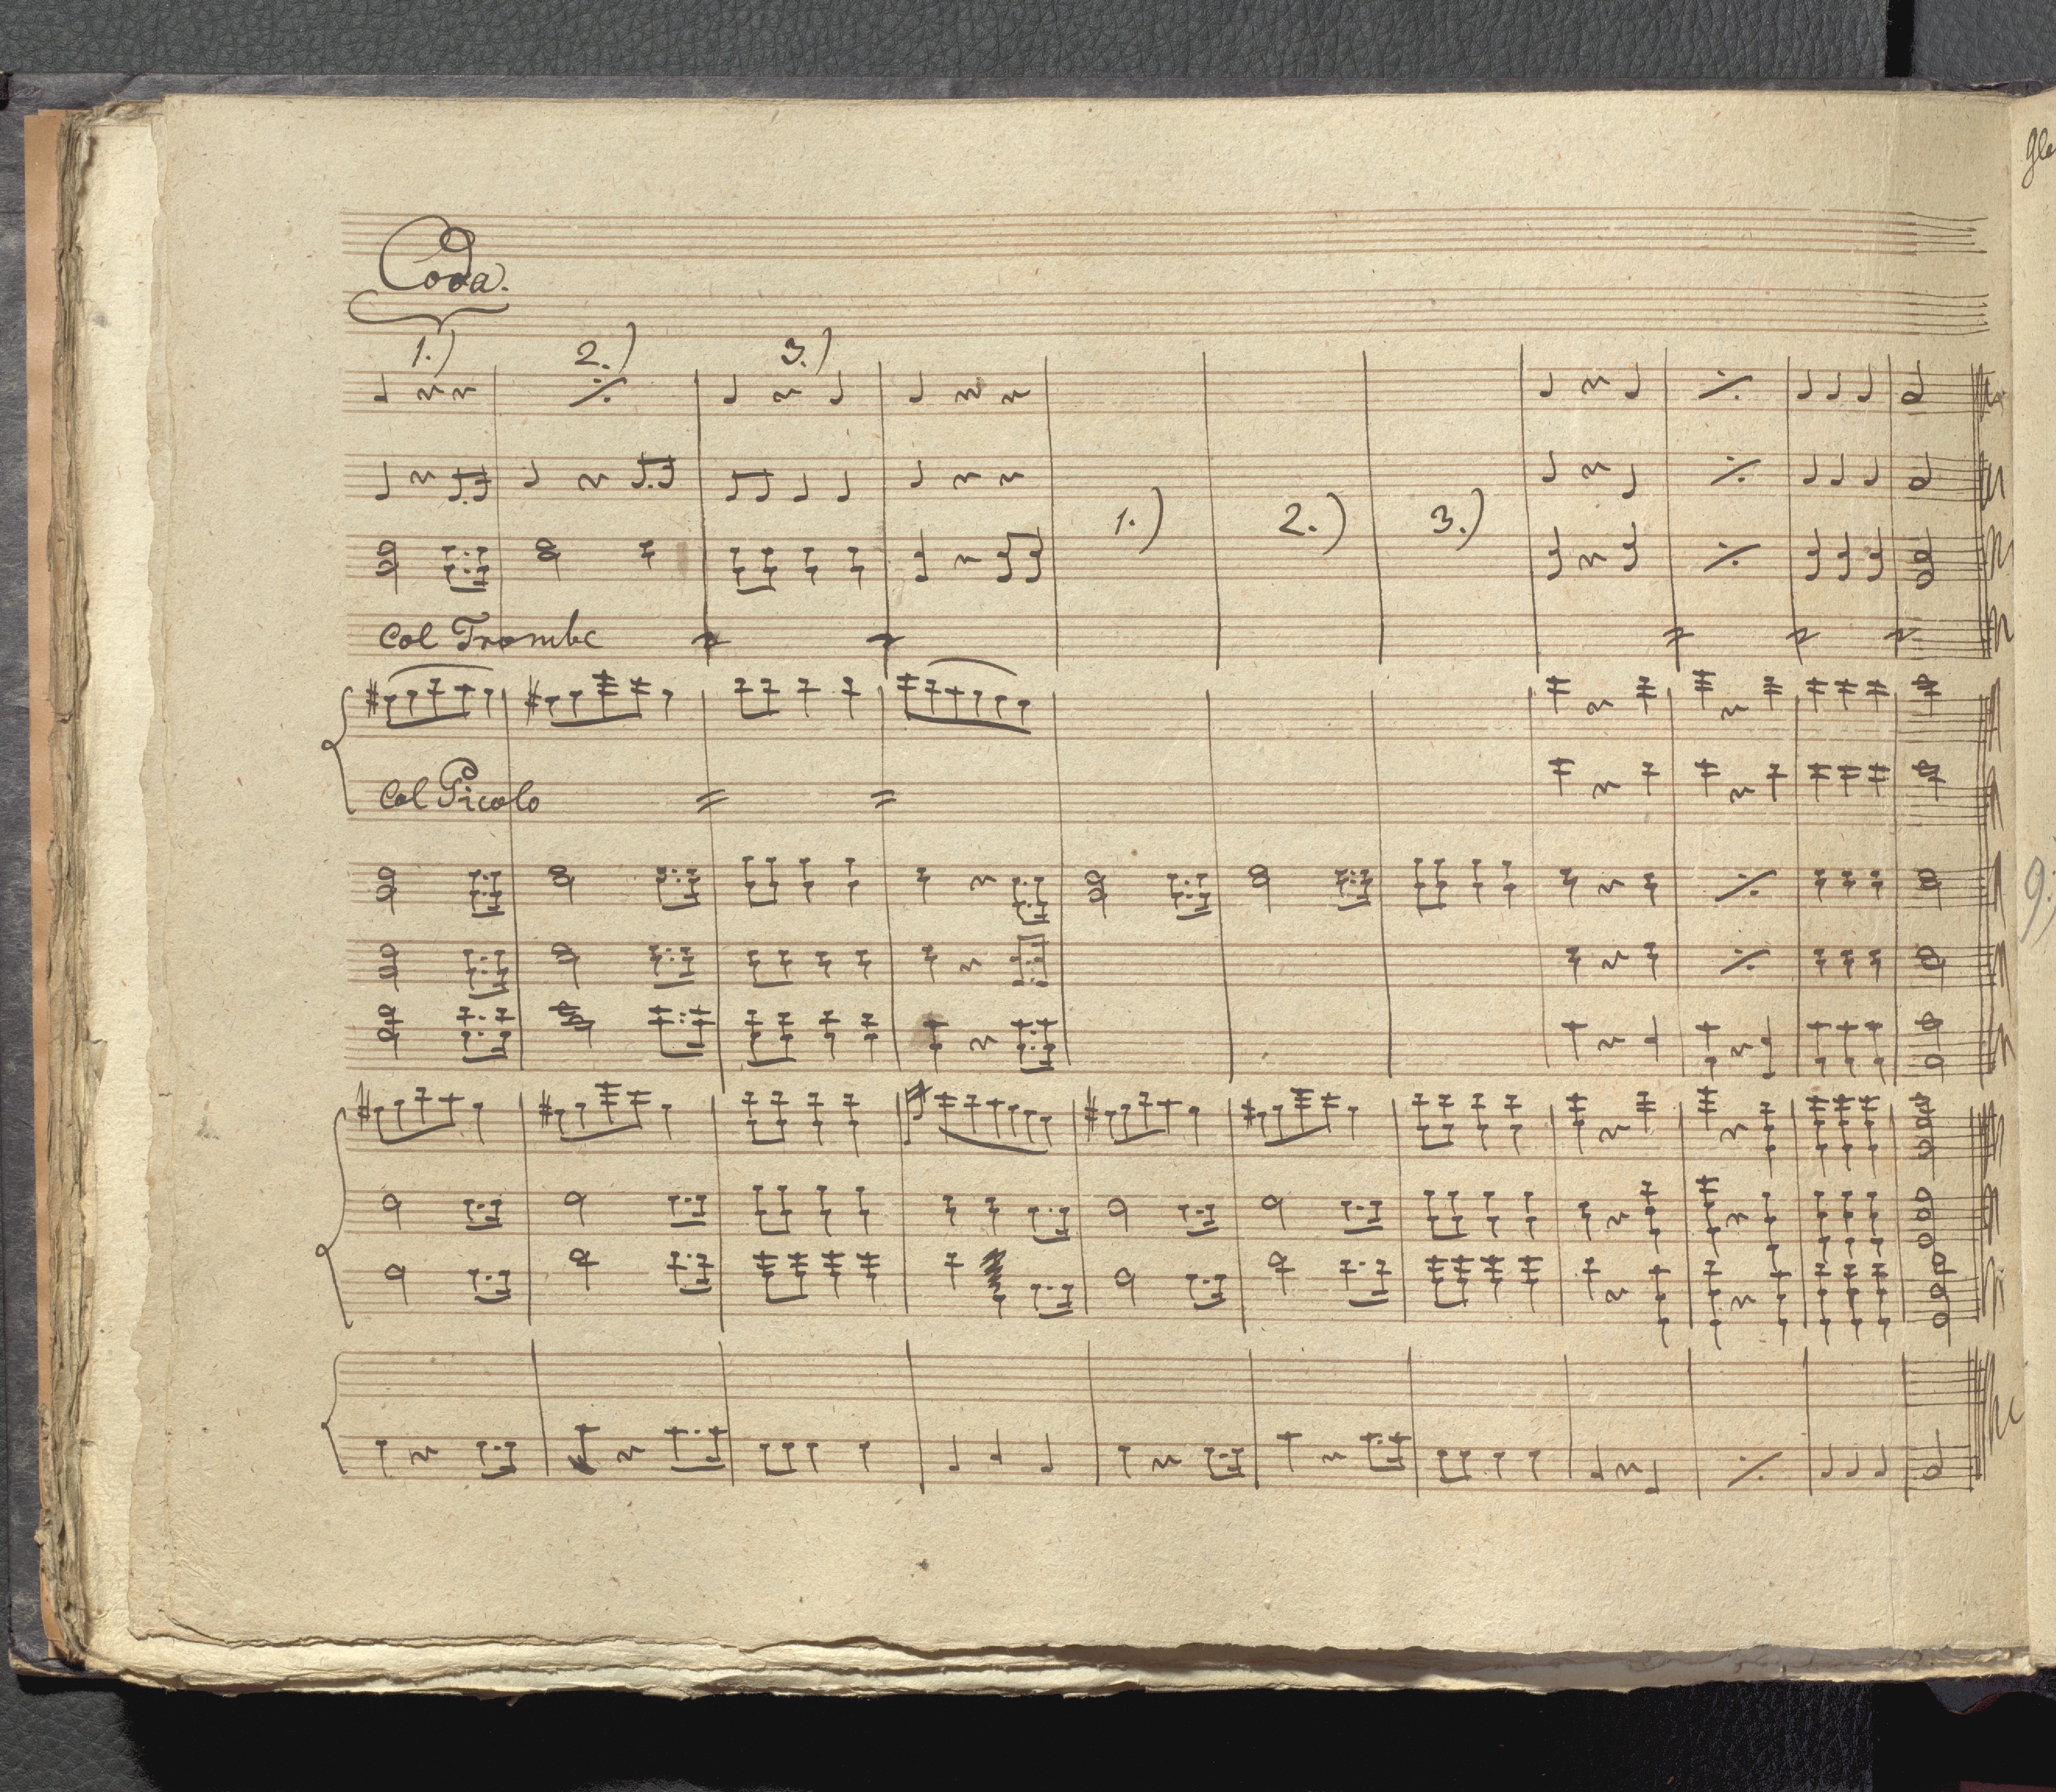 Coda.
1.) 2.) 3.)
1.) 2.) 3.)
Col Trombe
Col Picolo
9.)